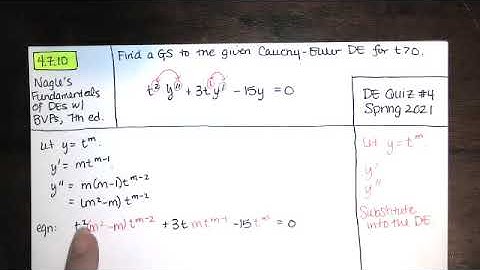 4.7.10
Nagle's
Fundamentals
of DEs w/
BVPs, 7th ed.
Find a GS to the given Cauchy-Euler DE for t>0.
t² y'' + 3t y' - 15y = 0
DE Quiz #4
Spring 2021
Let y = t^m
y' = mt^(m-1)
y'' = m(m-1)t^(m-2)
= (m²-m) t^(m-2)
eqn: t²(m²-m)t^(m-2) + 3t mt^(m-1) - 15t^m = 0
Let y = t^m.
y'
y''
Substitute
into the DE